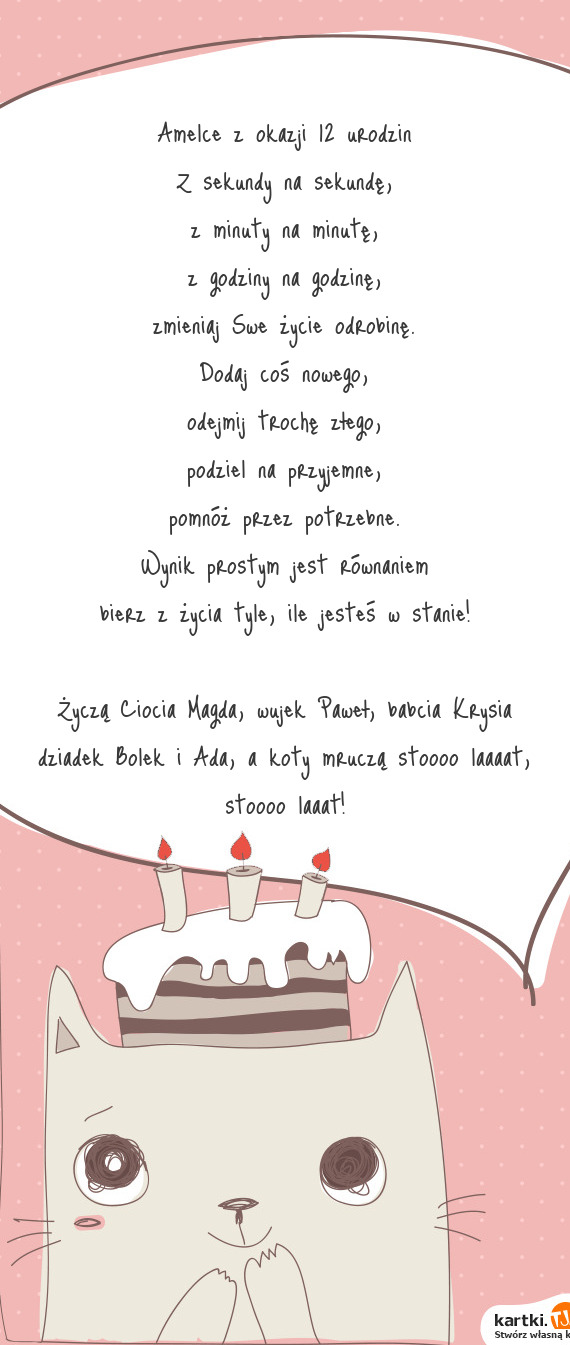 Amelce z okazji 12 urodzin
Z sekundy na sekundę,
z minuty na minutę,
z godziny na godzinę,
zmieniaj Swe życie odrobinę.
Dodaj coś nowego,
odejmij trochę złego,
podziel na przyjemne,
pomnóż przez potrzebne.
Wynik prostym jest równaniem
bierz z życia tyle, ile jesteś w stanie!
Życzą Ciocia Magda, wujek Paweł, babcia Krysia
dziadek Bolek i Ada, a koty mruczą stoooo laaaat,
stoooo laaat!
kartki.TJ
Stwórz własną k